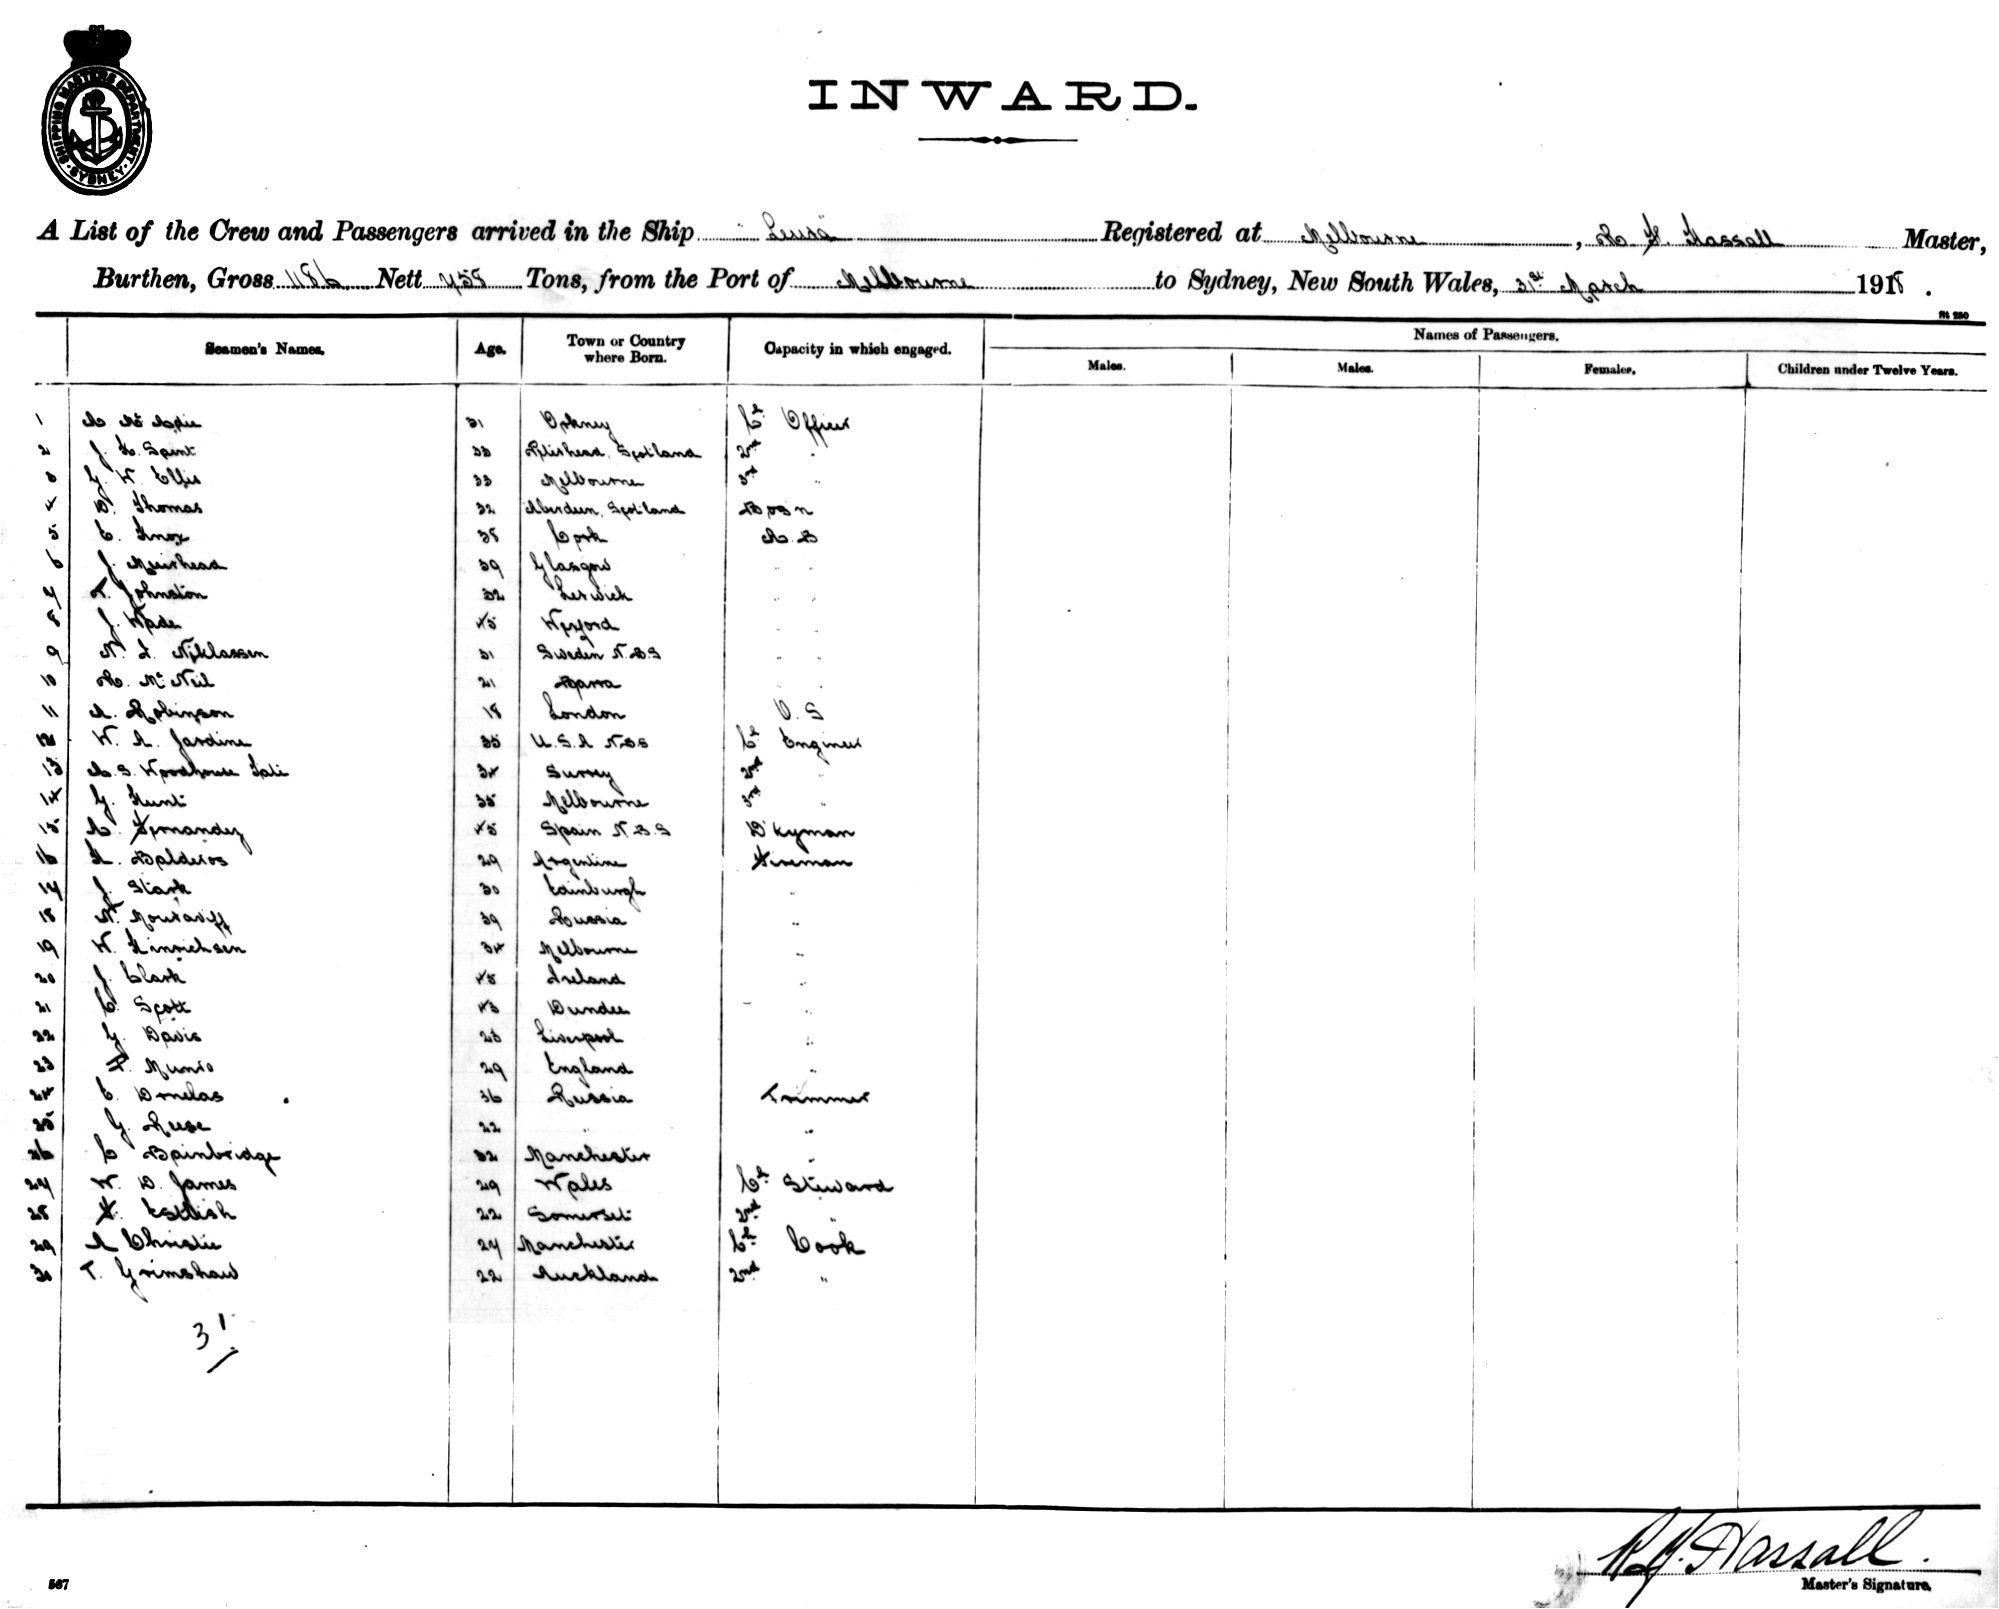 SHIPPING MASTERS DEPARTMENT
SYDNEY
INWARD.
A List of the Crew and Passengers arrived in the Ship Registered at Melbourne, R H Hassall Master,
Burthen, Gross 1186 Nett 758 Tons, from the Port of Melbourne to Sydney, New South Wales, 31st March 1918.
St 280
Seamen's Names. Age. Town or Country where Born. Capacity in which engaged. Names of Passengers.
Males. Males. Females. Children under Twelve Years.
1 A Mc Adie 31 Orkney Ch Officer
2 J. 33 Scotland 2nd "
3 G. W. Ellis 33 Melbourne 3rd "
4 D. Thomas 32 Aberdeen, Scotland Bosn
5 C. Knox 38 Cork A.B
6 J. Muirhead 39 Glasgow " "
7 T. Johnston 32 Lerwick " "
8 J. Wade 45 Wexford " "
9 N. I. Niklassen 31 Sweden N.B.S " "
10 R. Mc Neil 21 Barra " "
11 A. Robinson 18 London O.S
12 W. A. Jardine 35 U.S.A N.B.S Ch Engineer
13 A. S. Woodhouse 34 Surrey 2nd "
14 G. Hunt 35 Melbourne 3rd "
15 A. Fernandez 45 Spain N.B.S D'kyman
16 H. Balderos 29 Argentine Fireman
17 J. Stark 30 Edinburgh "
18 N. Mouraviff 39 Russia "
19 W. Hinrichsen 34 Melbourne "
20 J. Clark 45 Ireland "
21 C. Scott 43 Dundee "
22 G. Davis 23 Liverpool "
23 P. Munro 29 England "
24 C. Ornelas 36 Russia Trimmer
25 G. Reese 22 " "
26 C Bainbridge 32 Manchester "
27 W. D. James 29 Wales Ch Steward
28 F. 22 Somerset 2nd "
29 A Christie 27 Manchester Ch Cook
30 T. Grimshaw 22 Auckland 2nd "
31
R.H. Hassall.
Master's Signature.
567